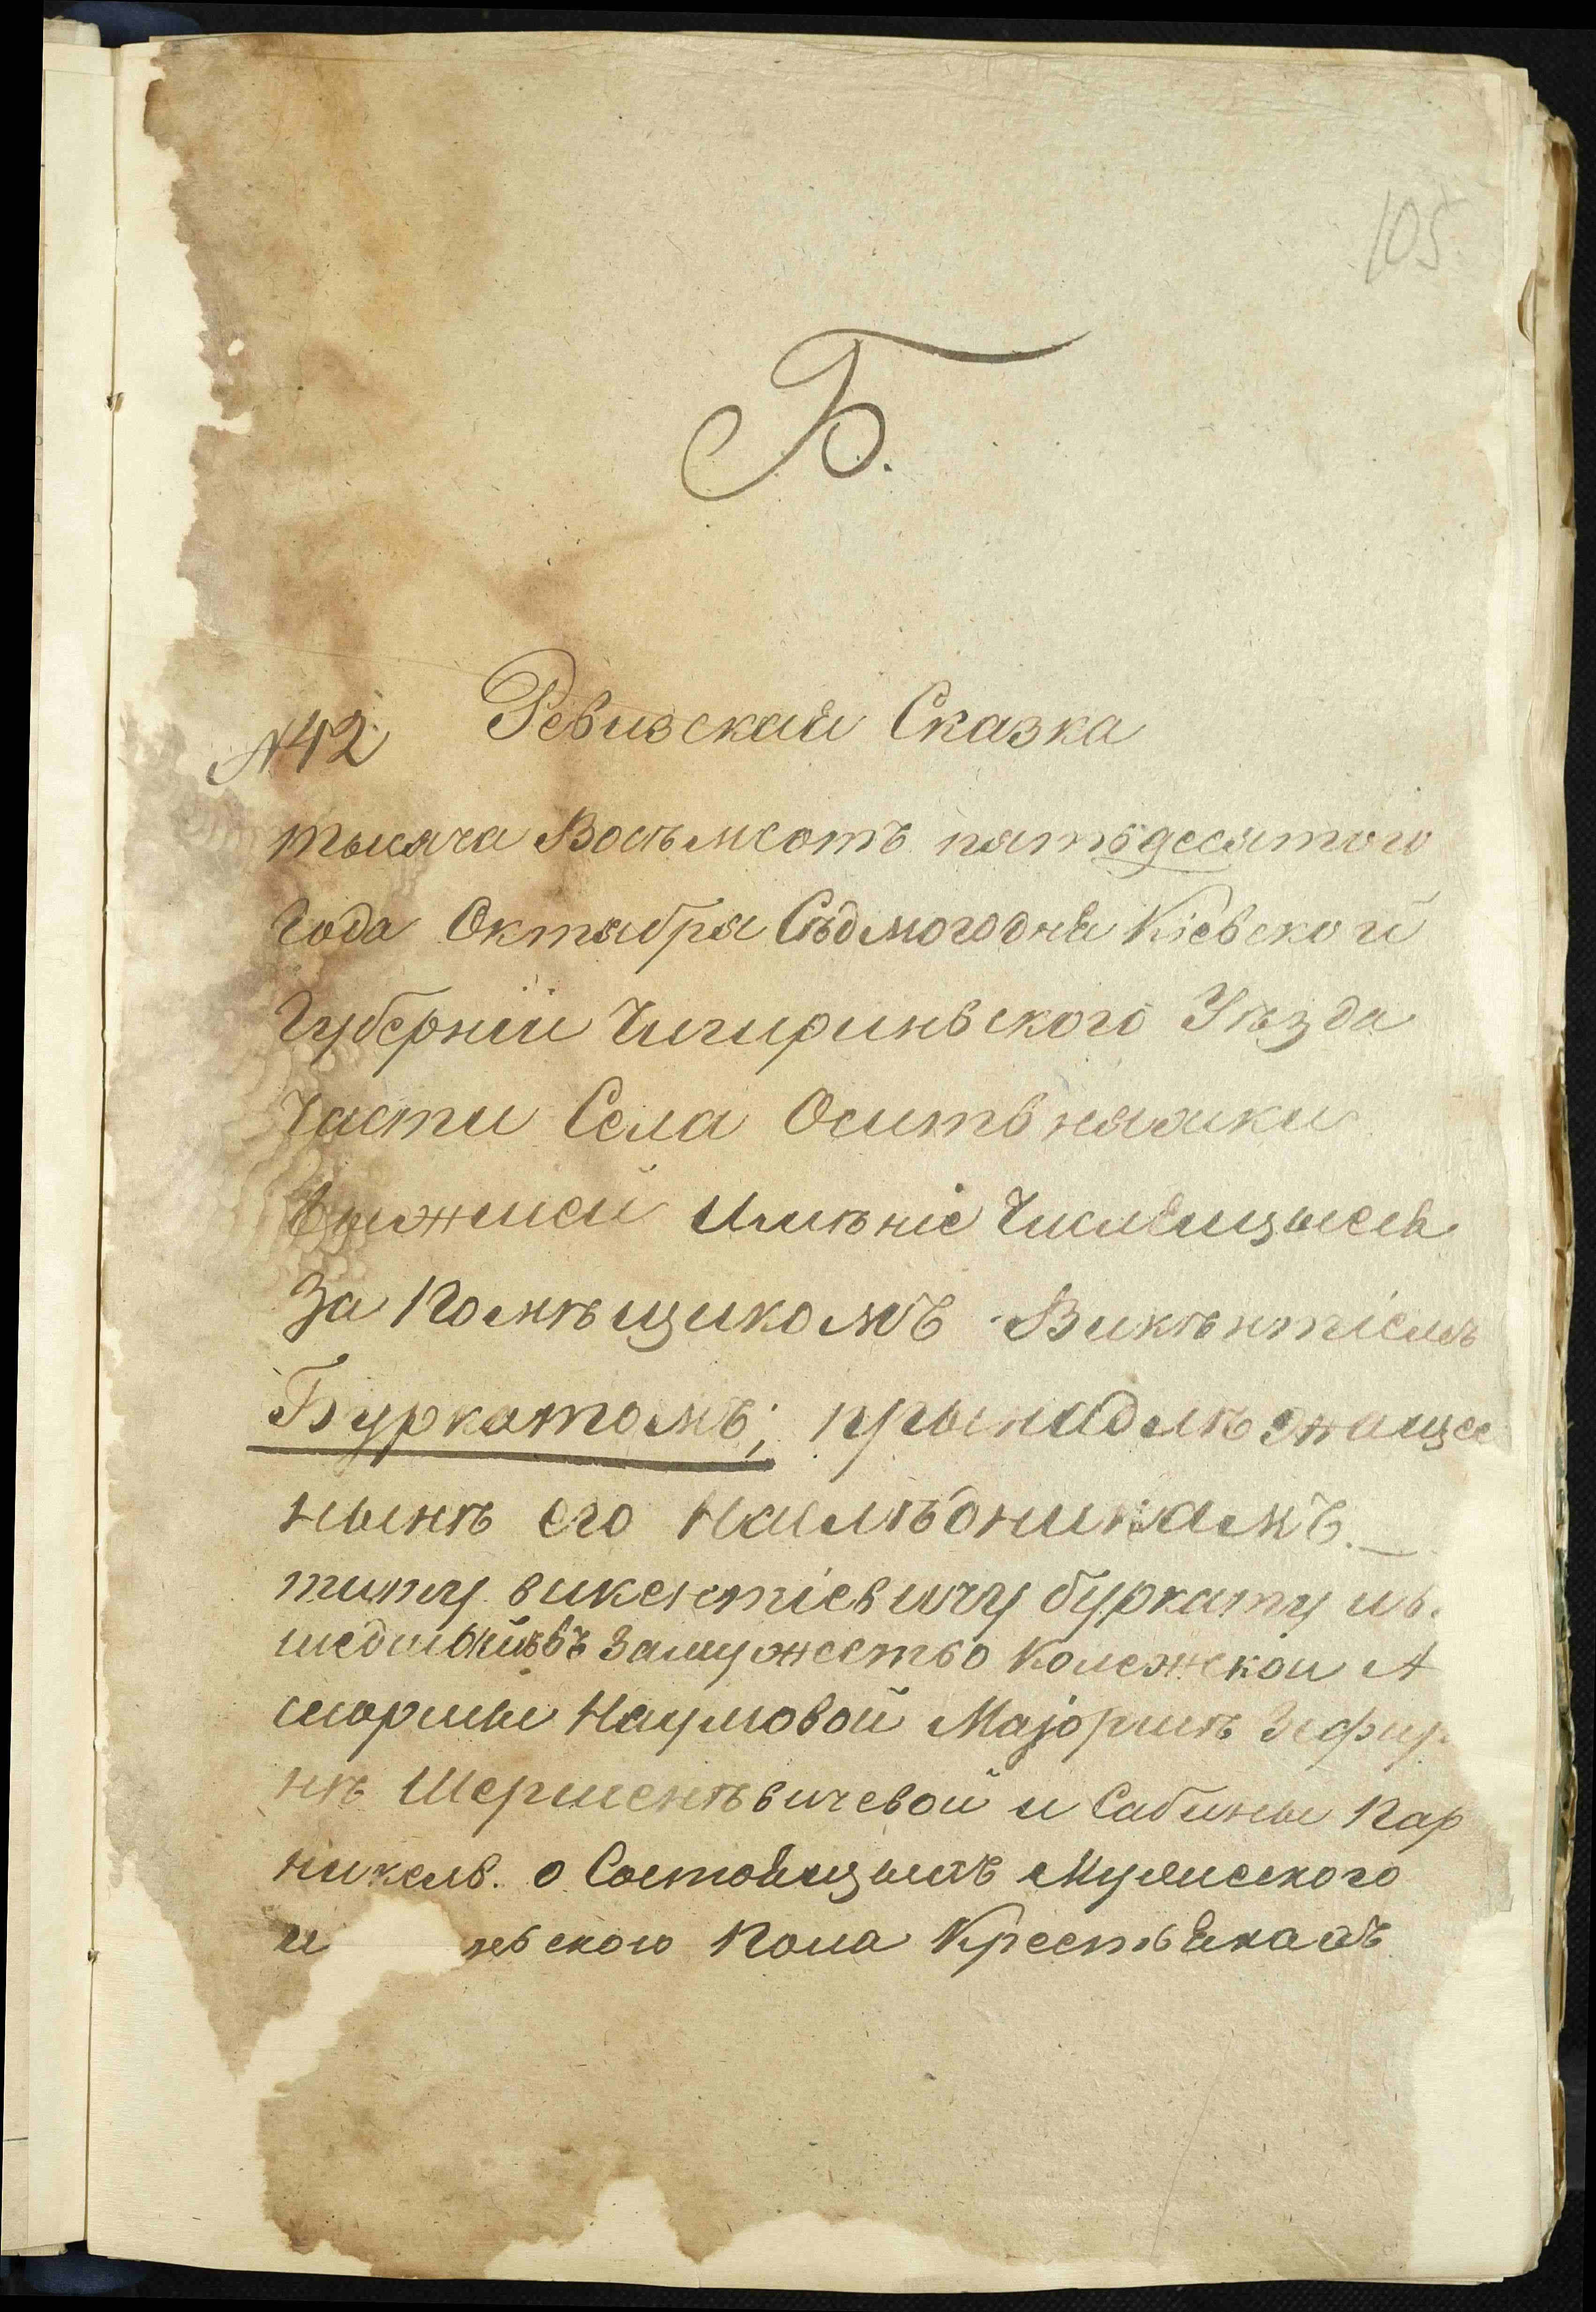 105
Б.
№42 Ревизская Сказка
тысяча Восъмсотъ пятъдесятого
Года Октября Сѣдмого дня Кіевской
Губерніи Чигиринвского Уѣзда
Части Села Оситвняжки
Имѣніе Числящыеся
За Помѣщикомъ Викѣнтіемъ
Буркатомъ; прынадлѣжаще
нынѣ его Наслѣдникамъ.
титу викентіевичу буркату ив.
шедшый въ Замужество Колежскои А
сеорши Наумовой Маіоршѣ Зефир
нѣ Шерменѣвичевой и Сабины Кар
никелв. о Состоящыхъ Мужеского
и нвского Пола Крестьянахъ